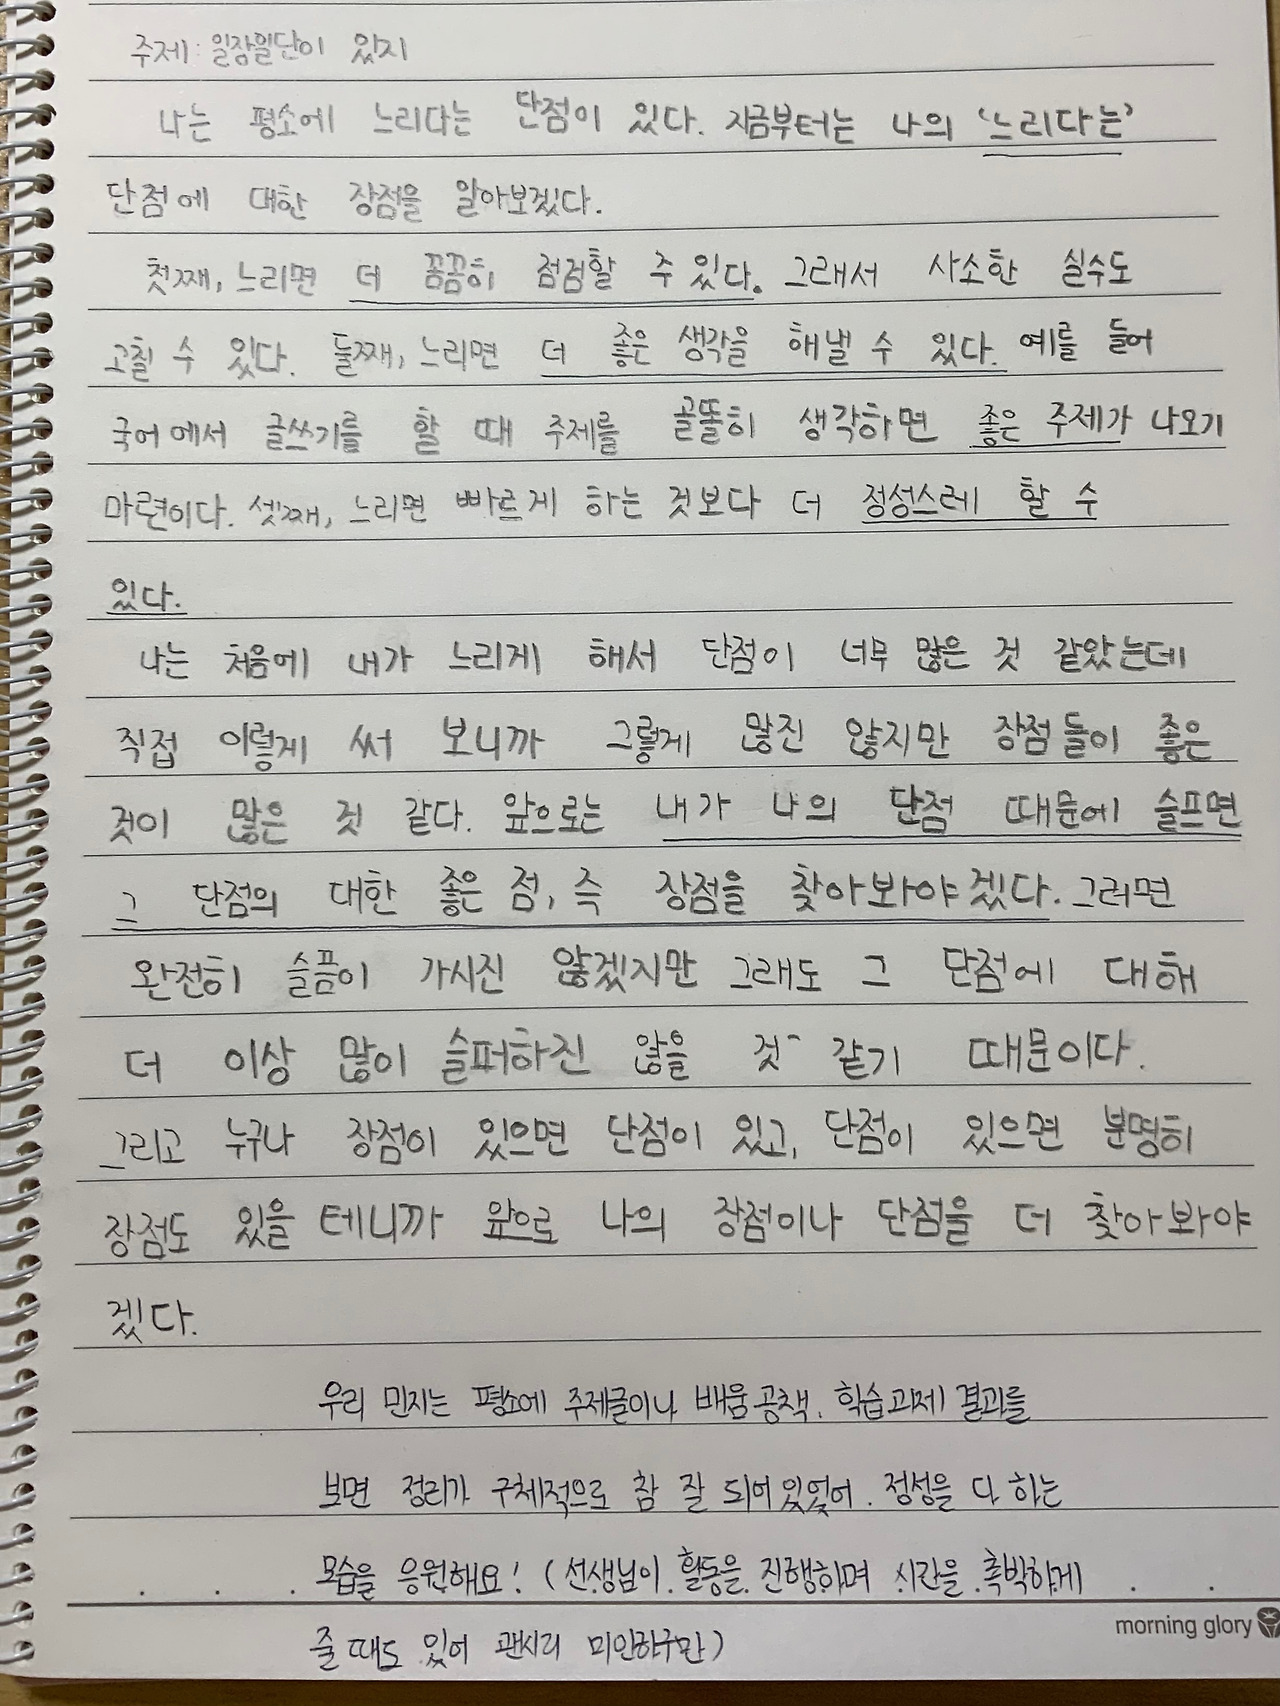 주제: 일장일단이 있지
나는 평소에 느리다는 단점이 있다. 지금부터는 나의 '느리다는'
단점에 대한 장점을 알아보겠다.
첫째, 느리면 더 꼼꼼히 점검할 수 있다. 그래서 사소한 실수도
고칠 수 있다. 둘째, 느리면 더 좋은 생각을 해낼 수 있다. 예를 들어
국어에서 글쓰기를 할 때 주제를 골똘히 생각하면 좋은 주제가 나오기
마련이다. 셋째, 느리면 빠르게 하는 것보다 더 정성스레 할 수
있다.
나는 처음에 내가 느리게 해서 단점이 너무 많은 것 같았는데
직접 이렇게 써 보니까 그렇게 많진 않지만 장점들이 좋은
것이 많은 것 같다. 앞으로는 내가 나의 단점 때문에 슬프면
그 단점의 대한 좋은 점, 즉 장점을 찾아봐야겠다. 그러면
완전히 슬픔이 가시진 않겠지만 그래도 그 단점에 대해
더 이상 많이 슬퍼하진 않을 것 같기 때문이다.
그리고 누구나 장점이 있으면 단점이 있고, 단점이 있으면 분명히
장점도 있을 테니까 앞으로 나의 장점이나 단점을 더 찾아봐야
겠다.
우리 민지는 평소에 주제글이나 배움공책, 학습과제 결과를
보면 정리가 구체적으로 참 잘 되어있었어. 정성을 다 하는
모습을 응원해요! (선생님이 활동을 진행하며 시간을 촉박하게
줄 때도 있어 괜시리 미안하구만)
morning glory